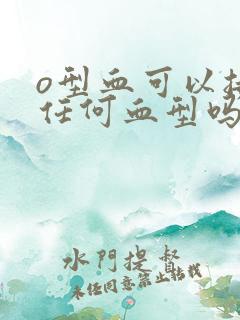 o型血可以接
任何血型吗
水門提督
未任同意禁止转载